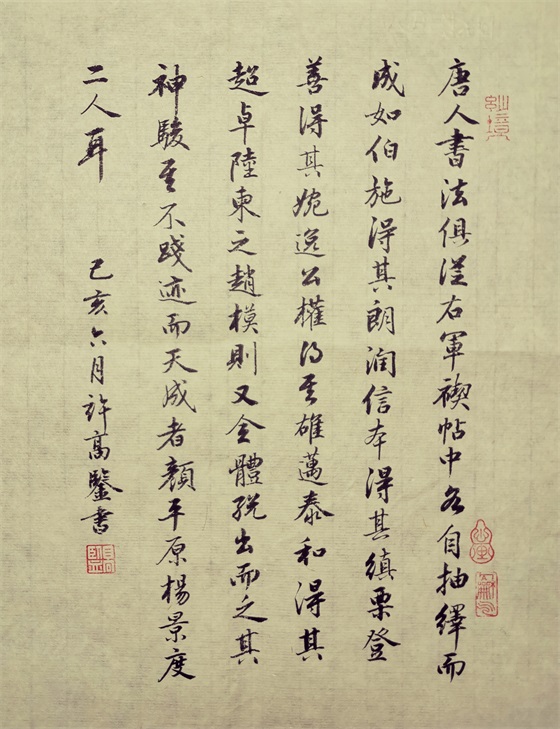 唐人書法俱從右軍禊帖中各自抽繹而
成如伯施得其朗潤信本得其縝栗登
善得其婉逸公權得其雄邁泰和得其
超卓陸東之趙模則又全體脫出而乏其
神駿至不踐迹而天成者顏平原楊景度
二人耳
己亥六月許高鑒書